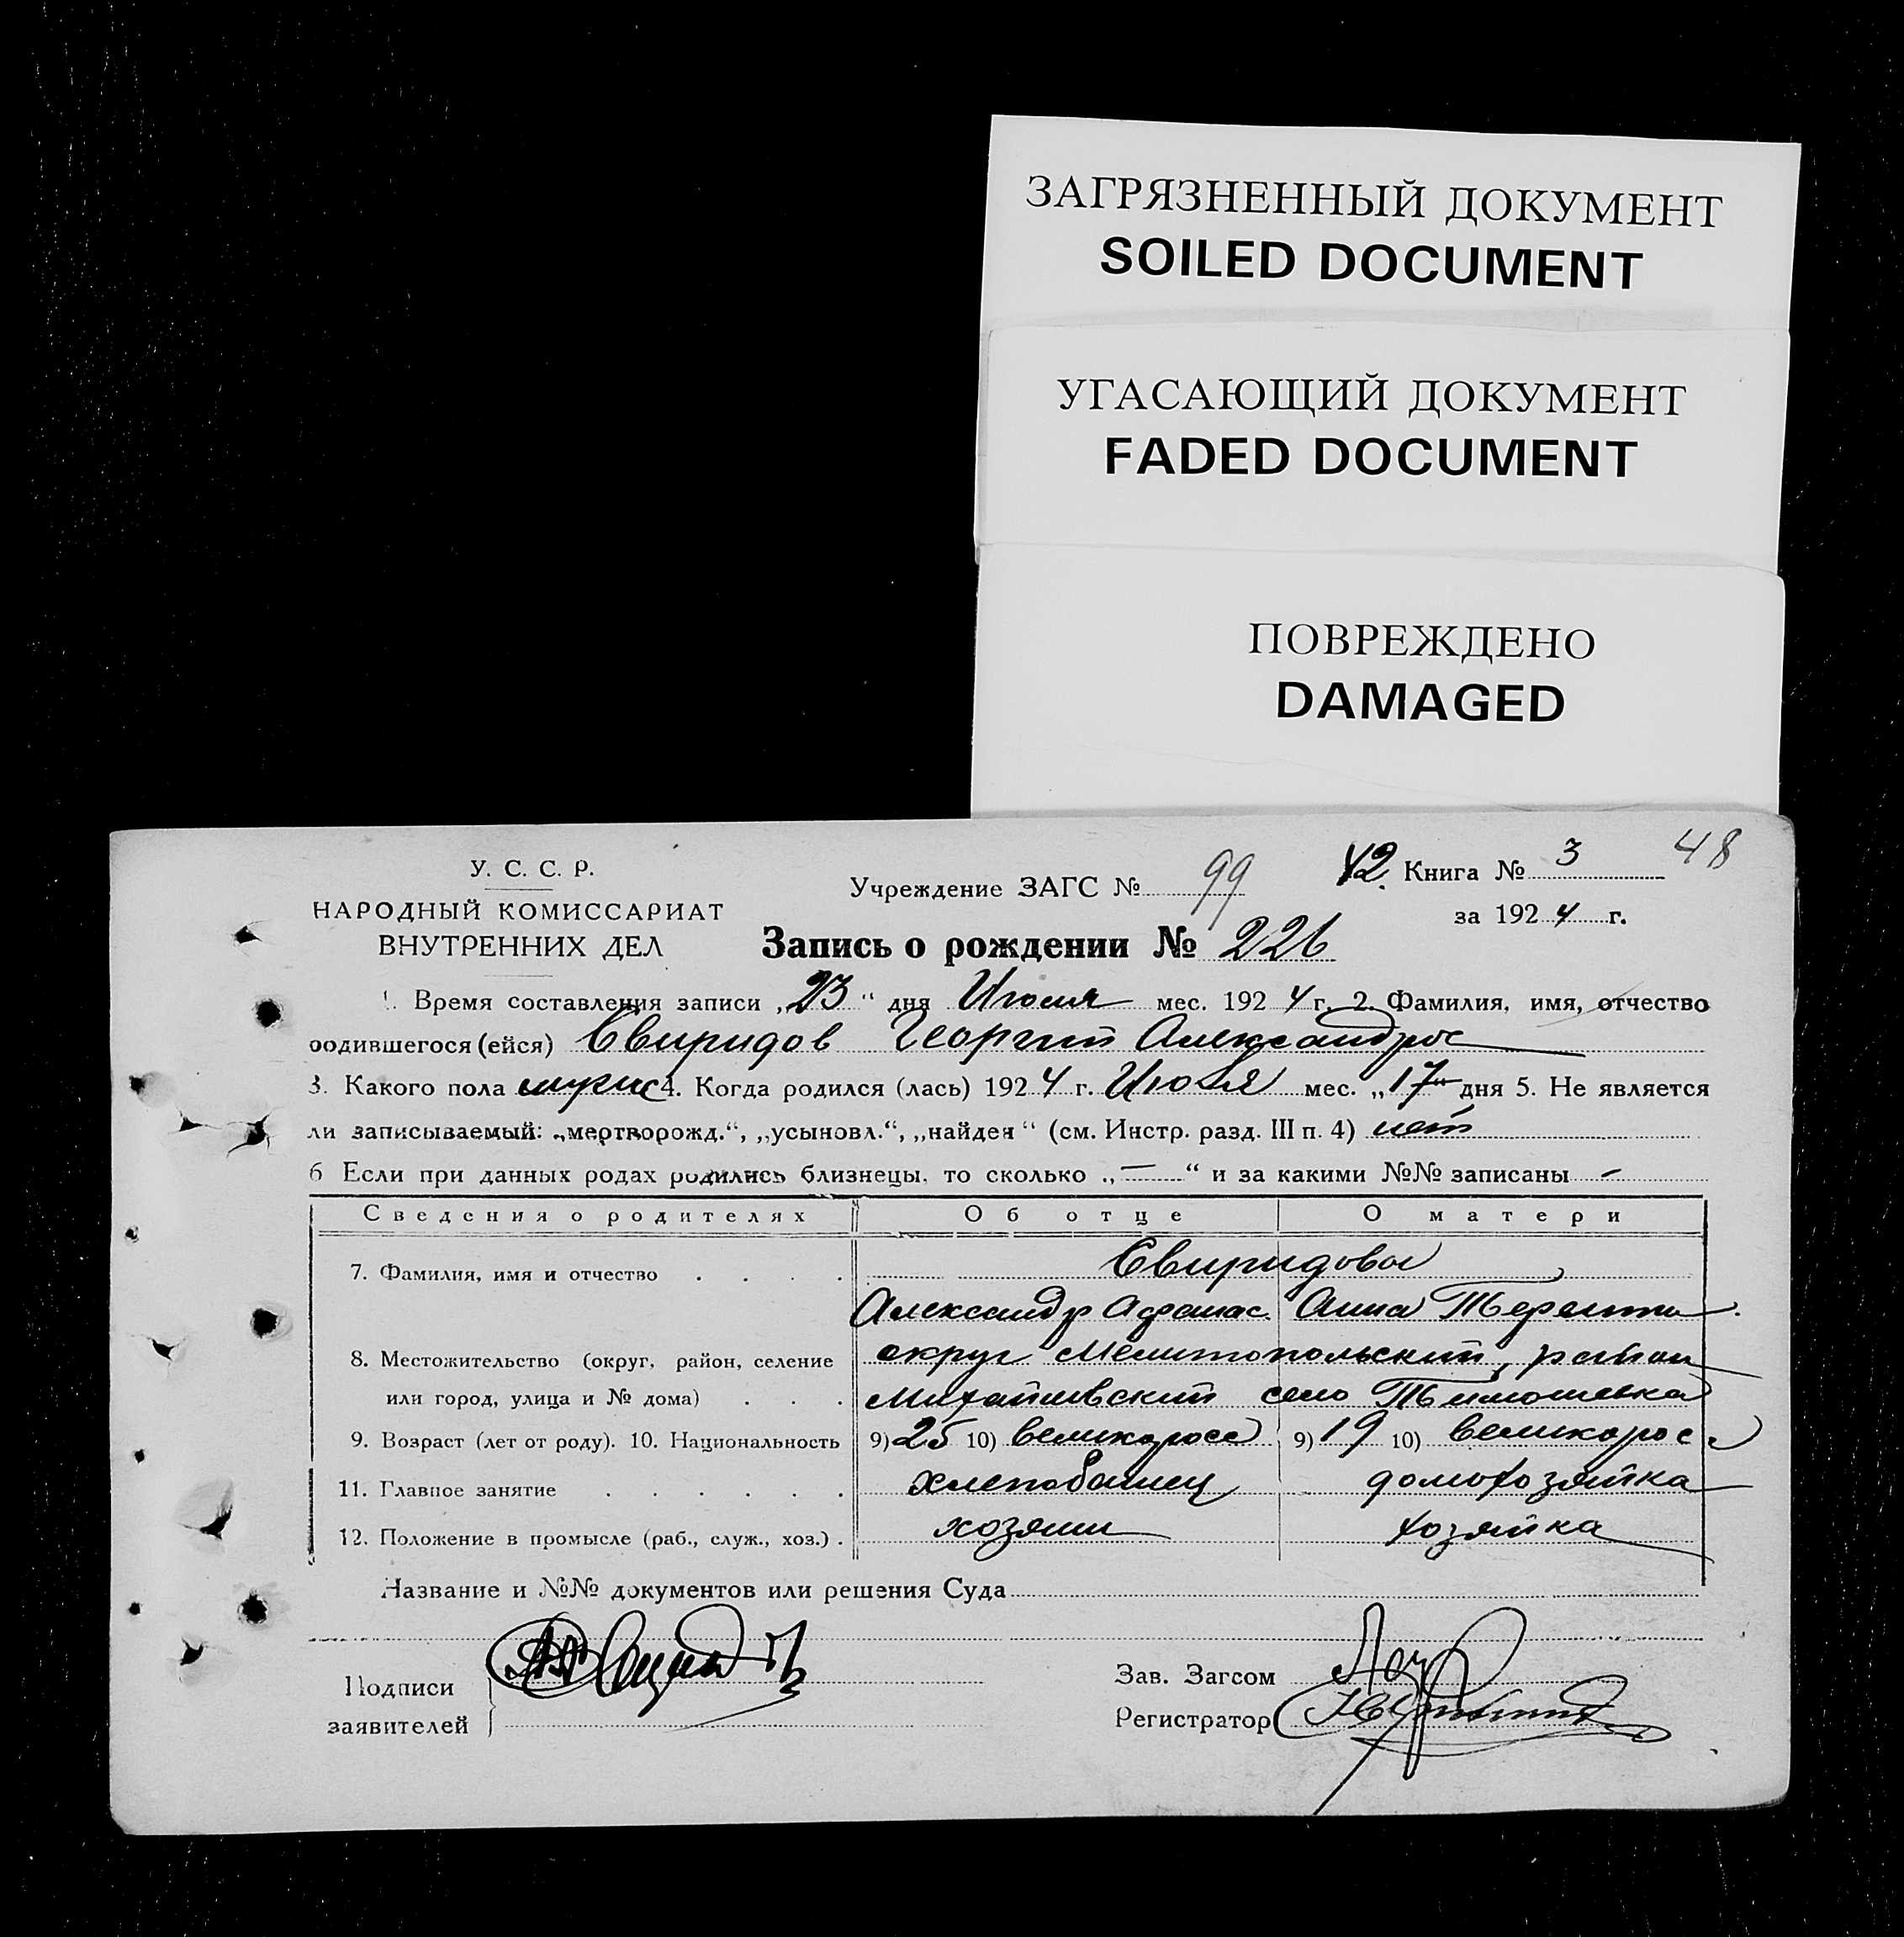 ЗАГРЯЗНЕННЫЙ ДОКУМЕНТ
SOILED DOCUMENT
УГАСАЮЩИЙ ДОКУМЕНТ
FADED DOCUMENT
ПОВРЕЖДЕНО
DAMAGED
У. С. С. Р.
НАРОДНЫЙ КОМИССАРИАТ
ВНУТРЕННИХ ДЕЛ
Учреждение ЗАГС № 99 42 Книга № 3 48
за 1924 г.
Запись о рождении № 226
1. Время составления записи „23“ дня Июля мес. 1924 г. 2. Фамилия, имя, отчество
родившегося (ейся) Свиридов Георгий Александров
3. Какого пола мужс 4. Когда родился (лась) 1924 г. Июля мес. „17“ дня 5. Не является
ли записываемый: „мертворожд.“, „усыновл.“, „найден“ (см. Инстр. разд. III п. 4) нет
6 Если при данных родах родились близнецы, то сколько „—“ и за какими №№ записаны -
Сведения о родителях Об отце О матери
7. Фамилия, имя и отчество . . . . Свиридовы
Александр Афанас. Анна Терентьи.
8. Местожительство (округ, район, селение округ Мелитопольский, район
или город, улица и № дома) . . . Михайловский село Тимошевка
9. Возраст (лет от роду). 10. Национальность 9) 25 10) великоросс 9) 19 10) великорос
11. Главное занятие . . . . . . хлепобашец домохозяйка
12. Положение в промысле (раб., служ., хоз.) . хозяин хозяйка
Название и №№ документов или решения Суда
Подписи
заявителей
Зав. Загсом
Регистратор